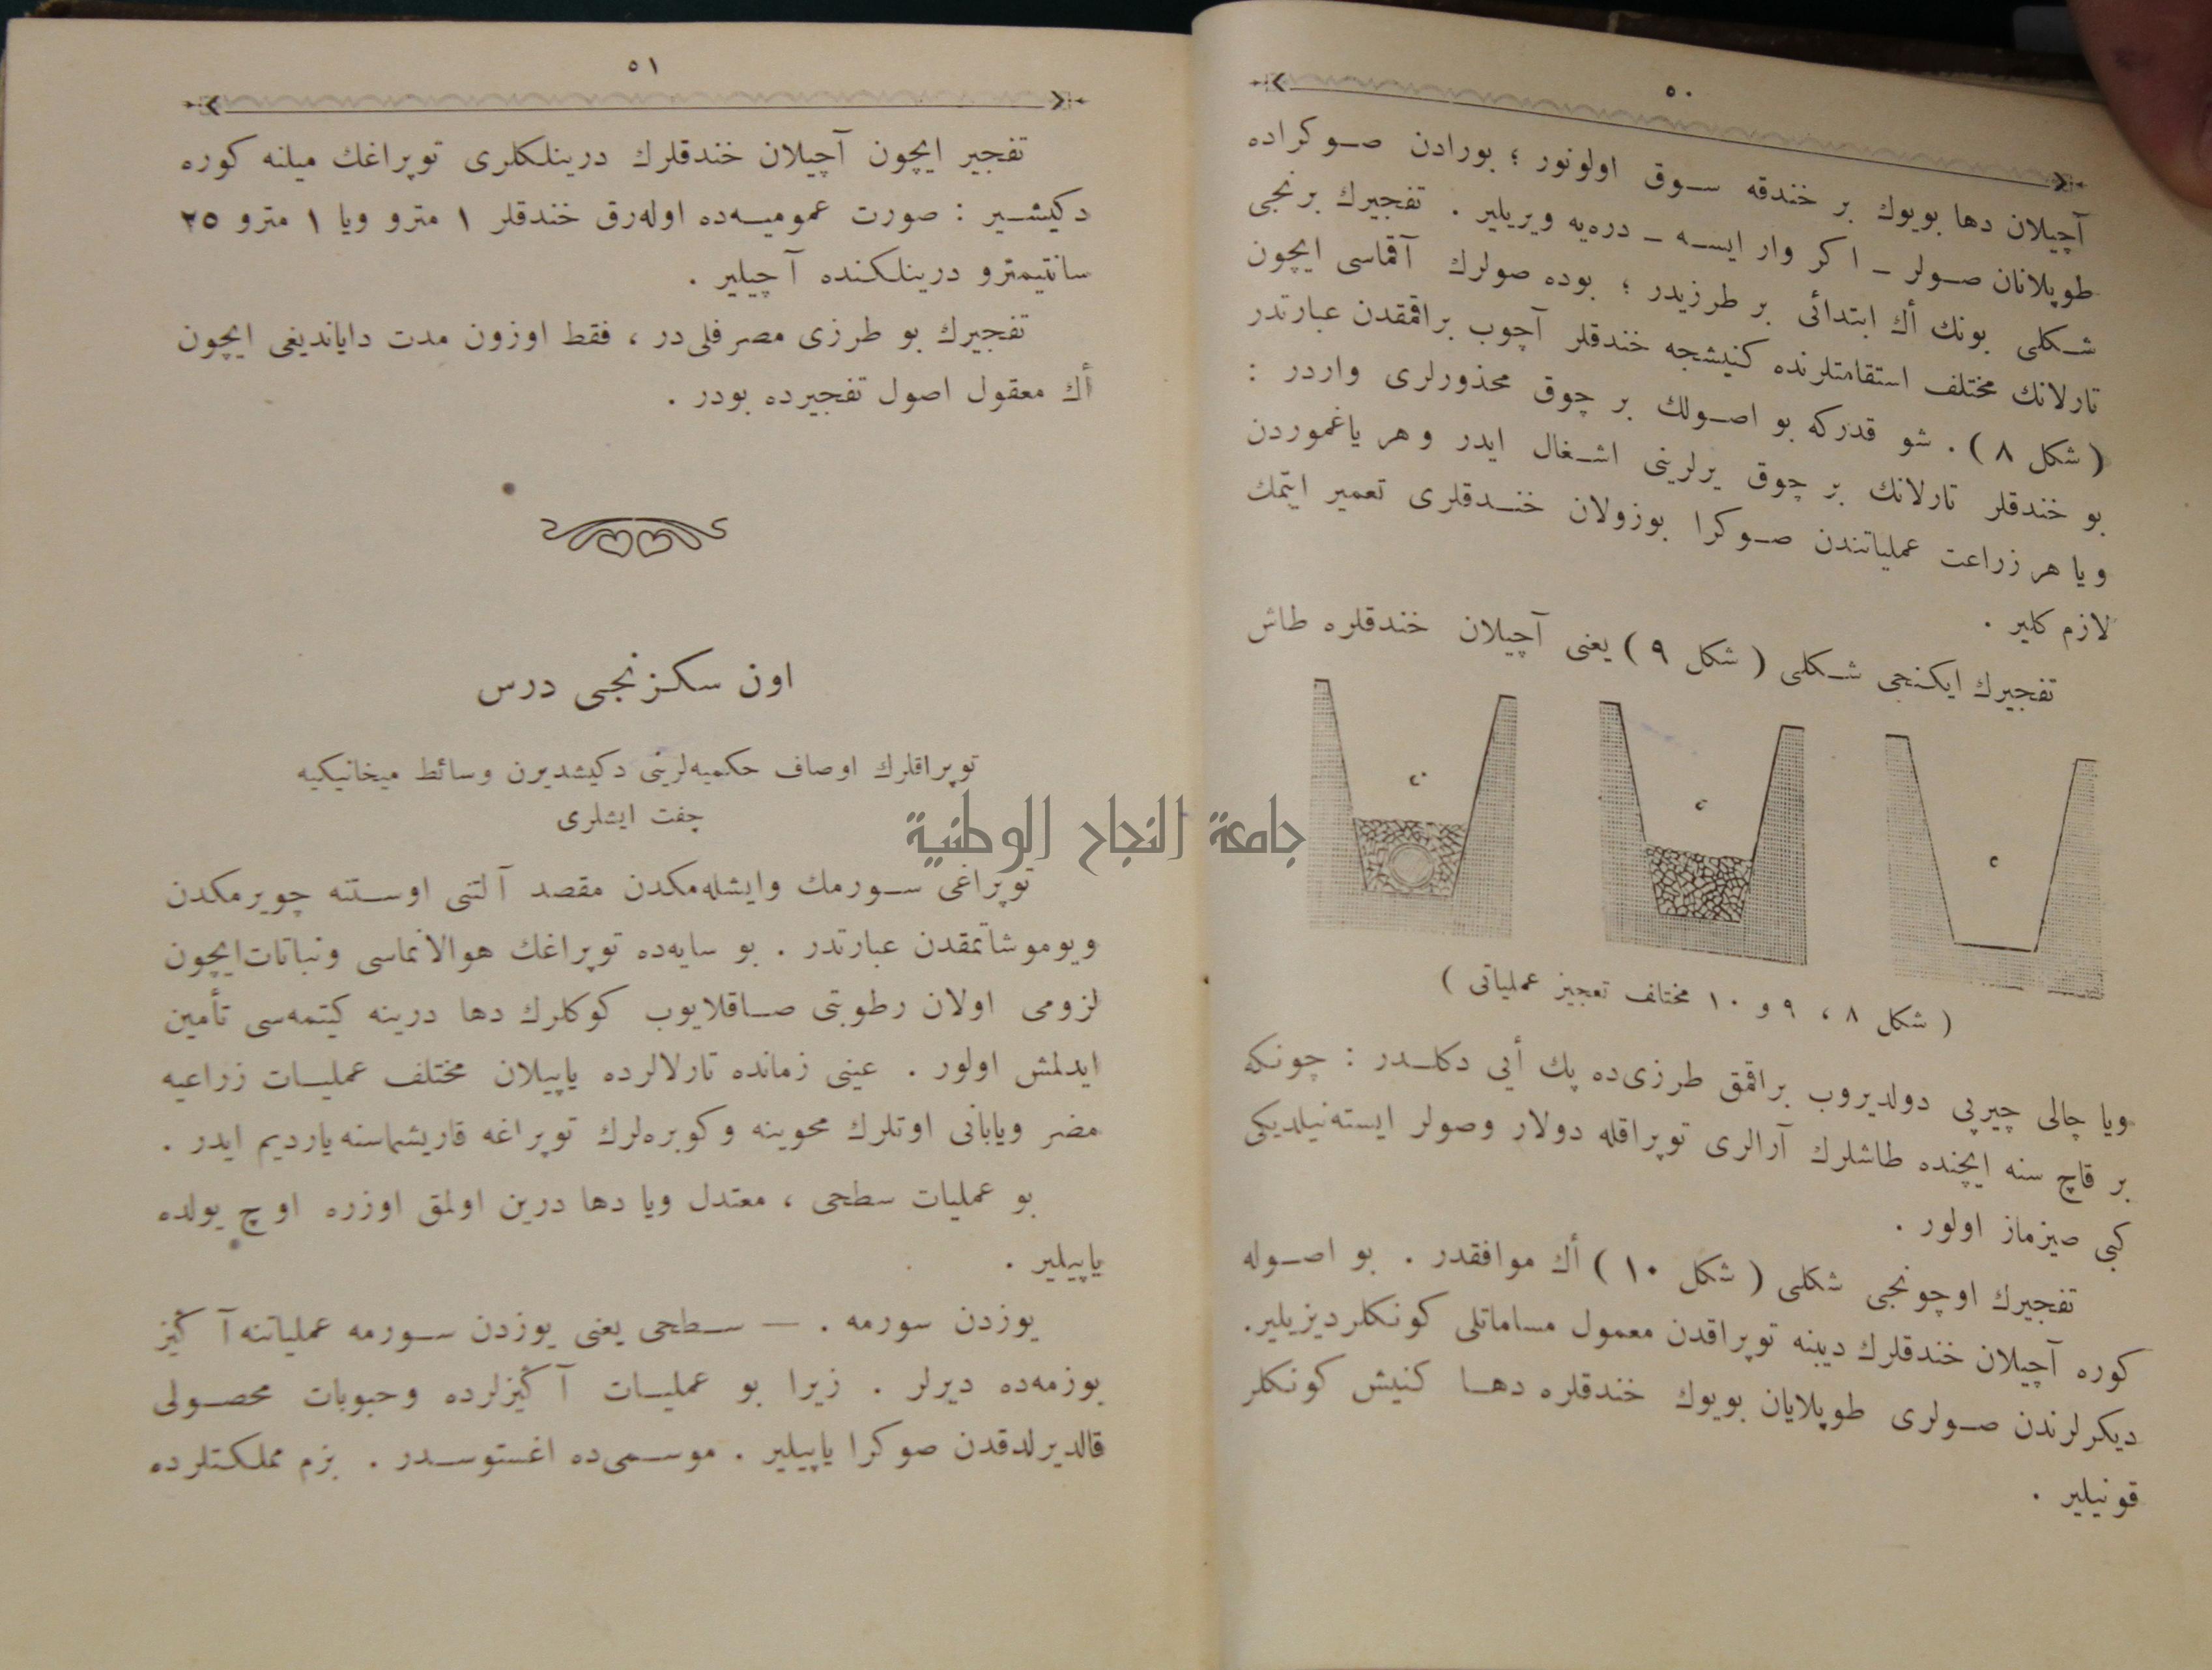 ٥٠
آچیلان دها بویوك بر خندقه سوق اولونور ؛ بورادن صوكراده
طوپلانان صولر ـ اكر وار ایسه ـ دره‌یه ویریلیر . تفجیرك برنجی
شكلی بونك أك ابتدائی بر طرزیدر ؛ بوده صولرك آقماسی ایچون
تارلانك مختلف استقامتلرنده كنیشجه خندقلر آچوب براقمقدن عبارتدر
( شكل ٨ ) . شو قدركه بو اصولك بر چوق محذورلری واردر :
بو خندقلر تارلانك بر چوق یرلرینی اشغال ایدر وهر یاغموردن
ویا هر زراعت عملیاتندن صوكرا بوزولان خندقلری تعمیر ایتمك
لازم كلیر .
تفجیرك ایكنجی شكلی ( شكل ٩ ) یعنی آچیلان خندقلره طاش
( شكل ٨ ، ٩ و ١٠ مختلف تعجیز عملیاتی )
ویا چالی چیرپی دولدیروب براقمق طرزی‌ده پك أیی دكلدر : چونكه
بر قاچ سنه ایچنده طاشلرك آرالری توپراقله دولار وصولر ایسته‌نیلدیكی
كبی صیزماز اولور .
تفجیرك اوچونجی شكلی ( شكل ١٠ ) أك موافقدر . بو اصوله
كوره آچیلان خندقلرك دیبنه توپراقدن معمول مساماتلی كونكلر دیزیلیر.
دیكرلرندن صولری طوپلایان بویوك خندقلره دها كنیش كونكلر
قونیلیر .
٥١
تفجیر ایچون آچیلان خندقلرك درینلكلری توپراغك میلنه كوره
دكیشیر : صورت عمومیه‌ده اوله‌رق خندقلر ١ مترو ویا ١ مترو ٢٥
سانتیمترو درینلكنده آچیلیر .
تفجیرك بو طرزی مصرفلی‌در ، فقط اوزون مدت دایاندیغی ایچون
أك معقول اصول تفجیرده بودر .
اون سكزنجی درس
توپراقلرك اوصاف حكمیه‌لرینی دكیشدیرن وسائط میخانیكیه
چفت ایشلری
جامعة النجاح الوطنية
توپراغی سورمك وایشله‌مكدن مقصد آلتنی اوستنه چویرمكدن
ویوموشاتمقدن عبارتدر . بو سایه‌ده توپراغك هوالانماسی ونباتات‌ایچون
لزومی اولان رطوبتی صاقلایوب كوكلرك دها درینه كیتمه‌سی تأمین
ایدلمش اولور . عینی زمانده تارلالرده یاپیلان مختلف عملیات زراعیه
مضر ویابانی اوتلرك محوینه وكوبره‌لرك توپراغه قاریشماسنه یاردیم ایدر .
بو عملیات سطحی ، معتدل ویا دها درین اولمق اوزره اوچ یولده
یاپیلیر .
یوزدن سورمه . — سطحی یعنی یوزدن سورمه عملیاتنه آ كیز
بوزمه‌ده دیرلر . زیرا بو عملیات آ كیزلرده وحبوبات محصولی
قالدیرلدقدن صوكرا یاپیلیر . موسمی‌ده اغستوسدر . بزم مملكتلرده